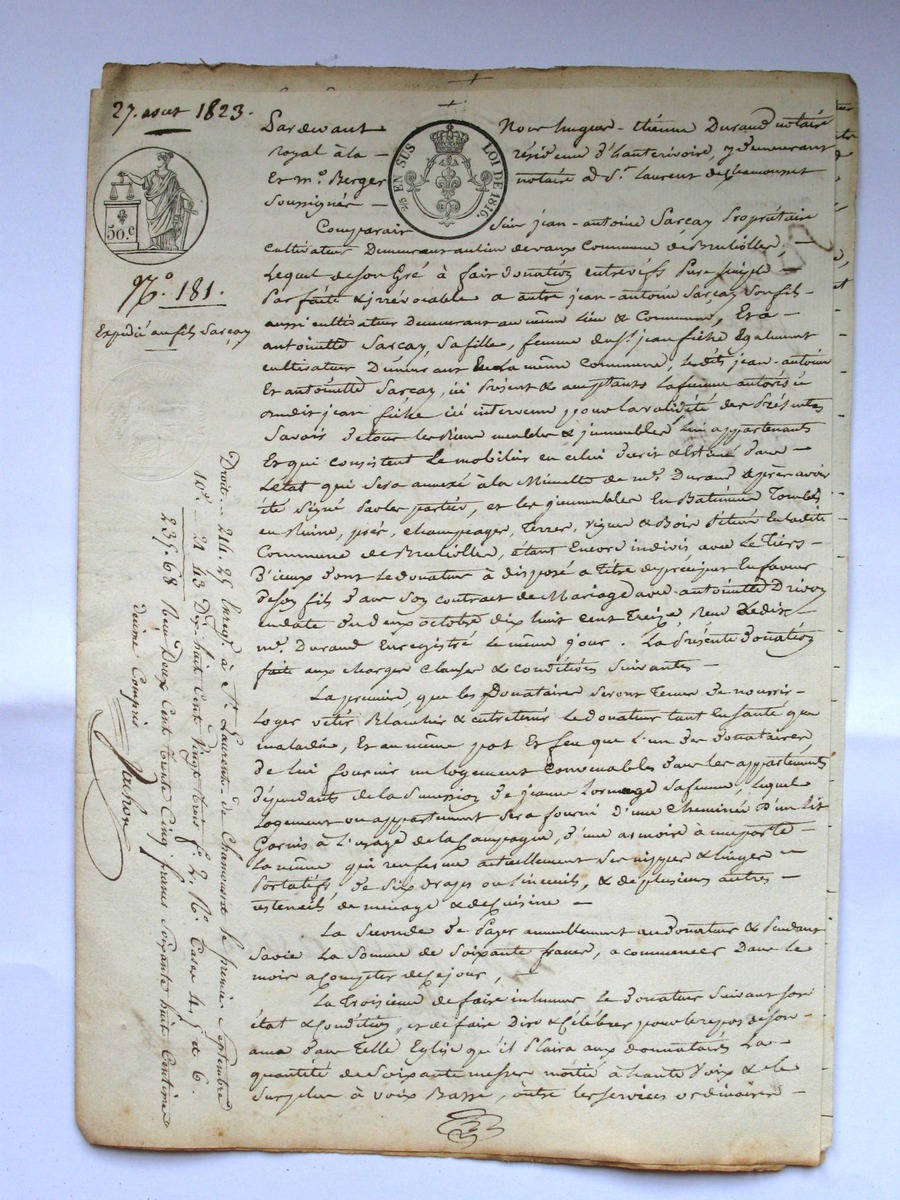 27. aout 1823.
50.c
25 EN SUS LOI DE 1816.
N.o 181.
Expédié au fils Sarcay
Pardevant Nous hugue-étienne Durand notaire
royal à la résidence d'hauterivoire, y demeurant
Et m.e Berger notaire à S.t Laurent de chamousset
Soussignés
Comparait Sieur jean-antoine Sarcay Propriétaire
cultivateur Demeurant au lieu de vaux Commune de Brullioller
Lequel de son Gré à fait donation entrevifs Pure Simple
Parfaite & irrévocable a autre jean-antoine Sarcay Son fils
aussi cultivateur Demeurant au même Lieu & Commune, Et a
antoinette Sarcay, Sa fille, femme du S.r jean fiché Egalement
cultivateur Demeurant En La même Commune, Lesdits jean-antoine
Et antoinette Sarcay, ici Présent & acceptants La femme autorisée
dudit jean fiche ici intervenu pour la validité des Présentes
Savoir De tous les Biens meubles & jmmeubles Lui appartenants
Et qui consistent Le mobilier en celui Décrit & Estimé Dans
L'état qui Sera annexé à la Minutte de m.e Durand après avoir
été Signé Par les parties, et les jmmeubles En Batiment Tombés
en Ruine, prés, champeage, Terres, vignes & Bois Situés En Ladite
Commune de Brullioller, étant Encore indivis avec Le Tiers
D'iceux Dont Le donateur à disposé a Titre de préciput En faveur
De son fils Dans Son contract de Mariage avec antoinette Drivon
en date du Deux octobre dix huit cent Treize, Reçu Ledit
m.e Durand Enregistré Le même jour. La Présente Donation
faite aux charges Clauses & conditions Suivantes
La première, que les Donataires Seront Tenus De nourrir
Loger vétir Blanchir & entretenir Le donateur tant En Santé que
maladie, Et au même pot Et feu que L'un des Donataires
De Lui fournir un logement convenables Dans les appartements
Dépendants de la Succession de jeanne Sa femme, Lequel
Logement ou appartement Sera fourni D'une Cheminée D'un Lit
Garnis à L'usage de la Campagne, D'une armoire a une porte
La même qui renferme actuellement Ses nippes & Linges
Portatifs, De Six Draps ou Linceuils, & de plusieurs autres
ustenciles de ménage & de Cuisine
La Seconde De Payer annuellement au Donateur & Pendant
Sa vie La Somme de Soixante francs, a commencer Dans Le
mois a Compter de ce jour,
La Troisieme de faire inhumer Le Donateur Suivant Son
état & Condition, et de faire Dire & Célébrer pour le repos de Son
ame Dans Telle Eglise qu'il Plaira aux donnataires La
quantité de Soixante messes moitié à haute Voix & le
Surplus à voix Basse, outre les Services ordinaires
Droit 214. 25 Enreg.é à S.t Laurent de Chamousset le premier Septembre
10.e 21 43 Dix huit Cent Vingt trois f. 2. R.o Cases 4. 5 & 6.
235. 68 Reçu Deux Cent Trente Cinq francs Soixante huit Centimes
decime Compris